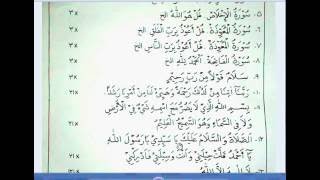 ٥- سُورَةُ الْإِخْلَاصِ. قُلْ هُوَ اللهُ الخ ٣x
٦- سُورَةُ الْمُعَوِّذَةِ. قُلْ أَعُوْذُ بِرَبِّ الْفَلَقِ الخ ٣x
٧- سُورَةُ الْمُعَوِّذَةِ. قُلْ أَعُوْذُ بِرَبِّ النَّاسِ الخ ٣x
٨- سُورَةُ الْفَاتِحَةِ. اَلْحَمْدُ لِلّٰهِ الخ ٣x
٩- سَلَامٌ قَوْلًا مِنْ رَبٍّ رَحِيْمٍ
١٠- رَبَّنَا آتِنَا مِنْ لَدُنْكَ رَحْمَةً وَهَيِّئْ لَنَا مِنْ أَمْرِنَا رَشَدًا ٢١x
١١- بِسْمِ اللهِ الَّذِيْ لَا يَضُرُّ مَعَ اسْمِهِ شَيْءٌ فِي الْأَرْضِ
وَلَا فِي السَّمَاءِ وَهُوَ السَّمِيْعُ الْعَلِيْمُ ٢١x
١٢- اَلصَّلَاةُ وَالسَّلَامُ عَلَيْكَ يَا سَيِّدِيْ يَا رَسُوْلَ اللهِ
حِيْلَتِيْ وَأَنْتَ وَسِيْلَتِيْ ٢١x